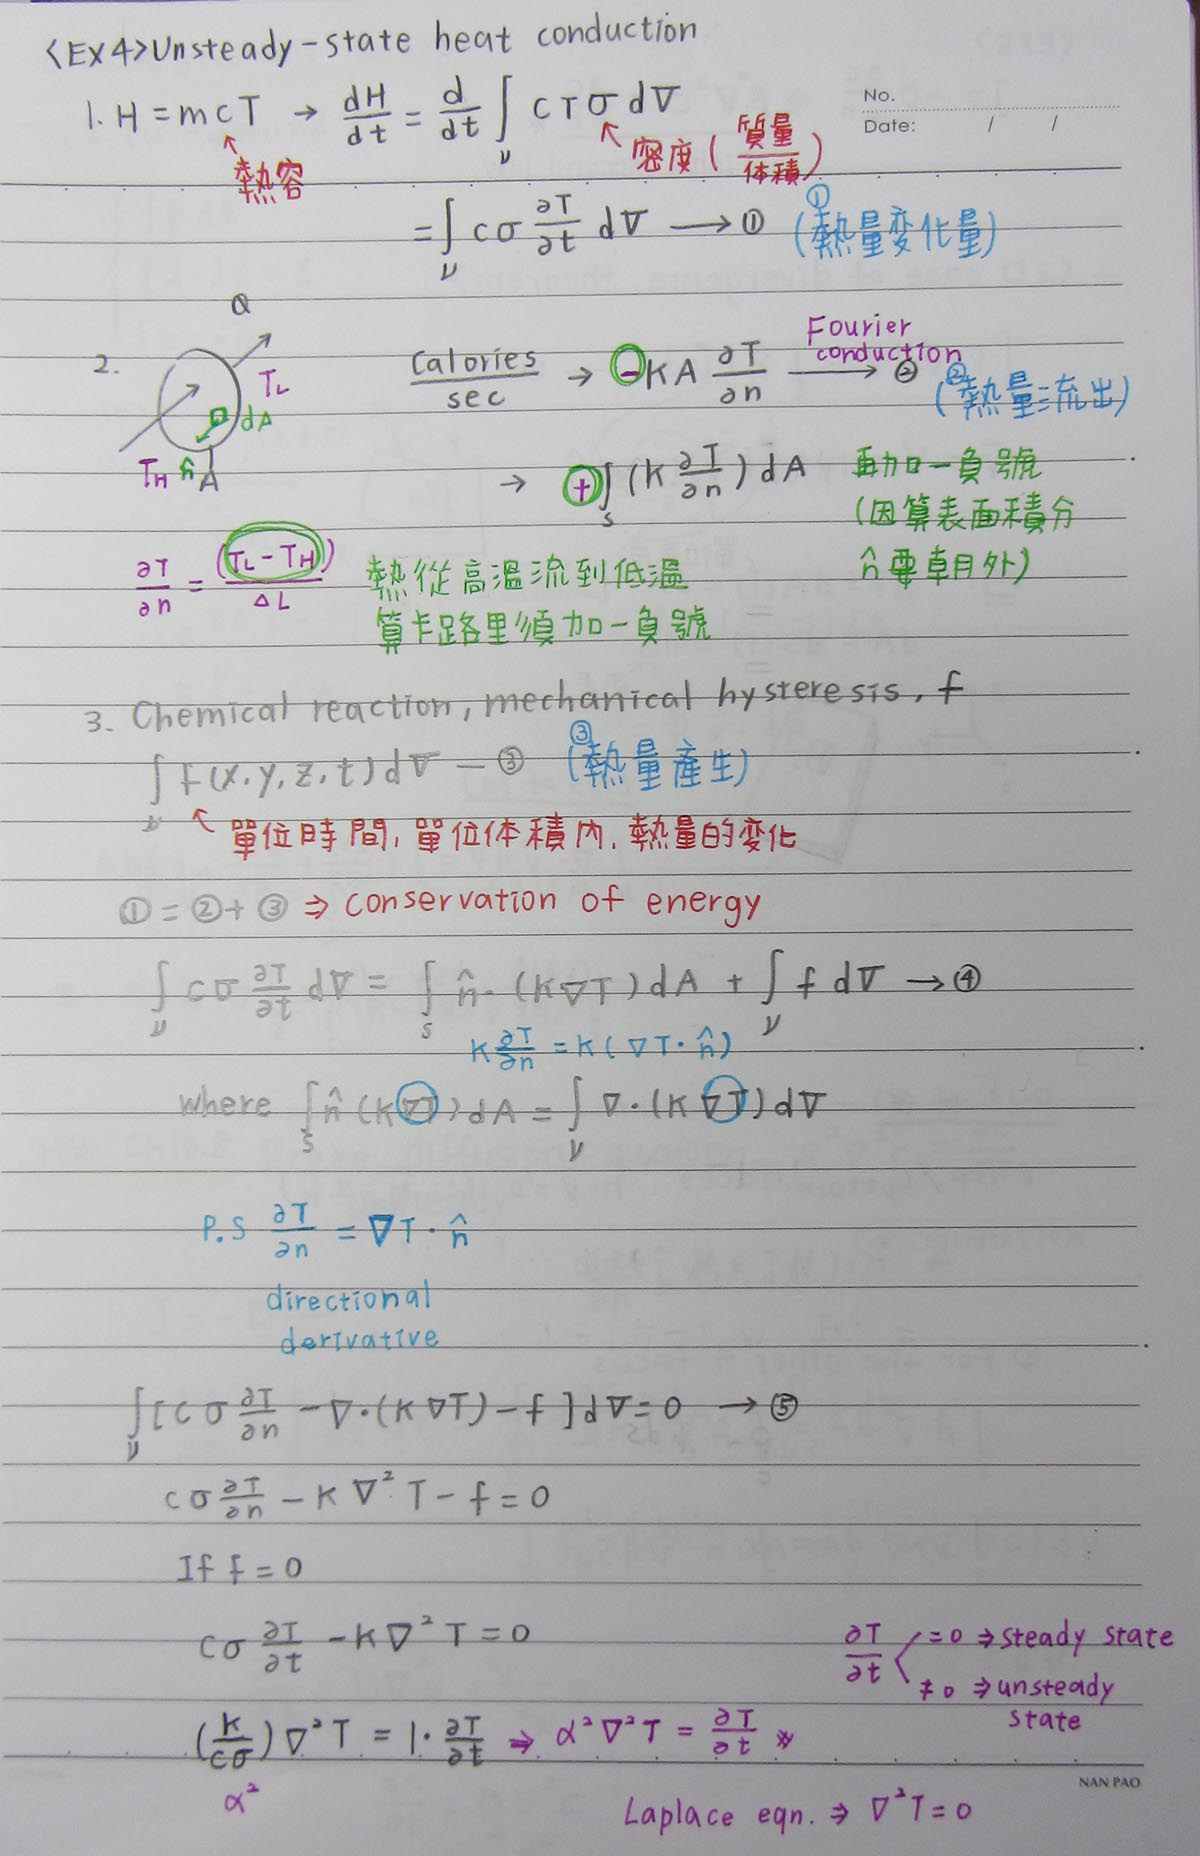 <EX4> Unsteady-state heat conduction
No.
Date: / /
1. H = mcT → dH/dt = d/dt ∫_V cTσ dV
熱容
密度 (質量/体積)
= ∫_V cσ ∂T/∂t dV → ① (①熱量变化量)
2.
Q
T_L
dA
T_H n̂ A
Calories/sec → -KA ∂T/∂n → ② (②熱量流出)
Fourier conduction
→ +∫_S (K ∂T/∂n) dA 再加一負號
(因算表面積分
n̂要朝外)
∂T/∂n = (T_L - T_H)/ΔL
熱從高溫流到低溫
算卡路里須加一負號
3. Chemical reaction, mechanical hysteresis, f
∫_V f(x,y,z,t) dV — ③ (③熱量產生)
單位時間, 單位体積內, 熱量的变化
① = ② + ③ ⇒ conservation of energy
∫_V cσ ∂T/∂t dV = ∫_S n̂·(K∇T) dA + ∫_V f dV → ④
K ∂T/∂n = K(∇T·n̂)
where ∫_S n̂(K∇T) dA = ∫_V ∇·(K∇T) dV
P.S ∂T/∂n = ∇T·n̂
directional
derivative
∫_V [cσ ∂T/∂n - ∇·(K∇T) - f] dV = 0 → ⑤
cσ ∂T/∂n - K∇²T - f = 0
If f = 0
cσ ∂T/∂t - K∇²T = 0
∂T/∂t = 0 ⇒ steady state
≠ 0 ⇒ unsteady
state
(K/cσ)∇²T = 1·∂T/∂t ⇒ α²∇²T = ∂T/∂t ※
α²
NAN PAO
Laplace eqn. ⇒ ∇²T = 0